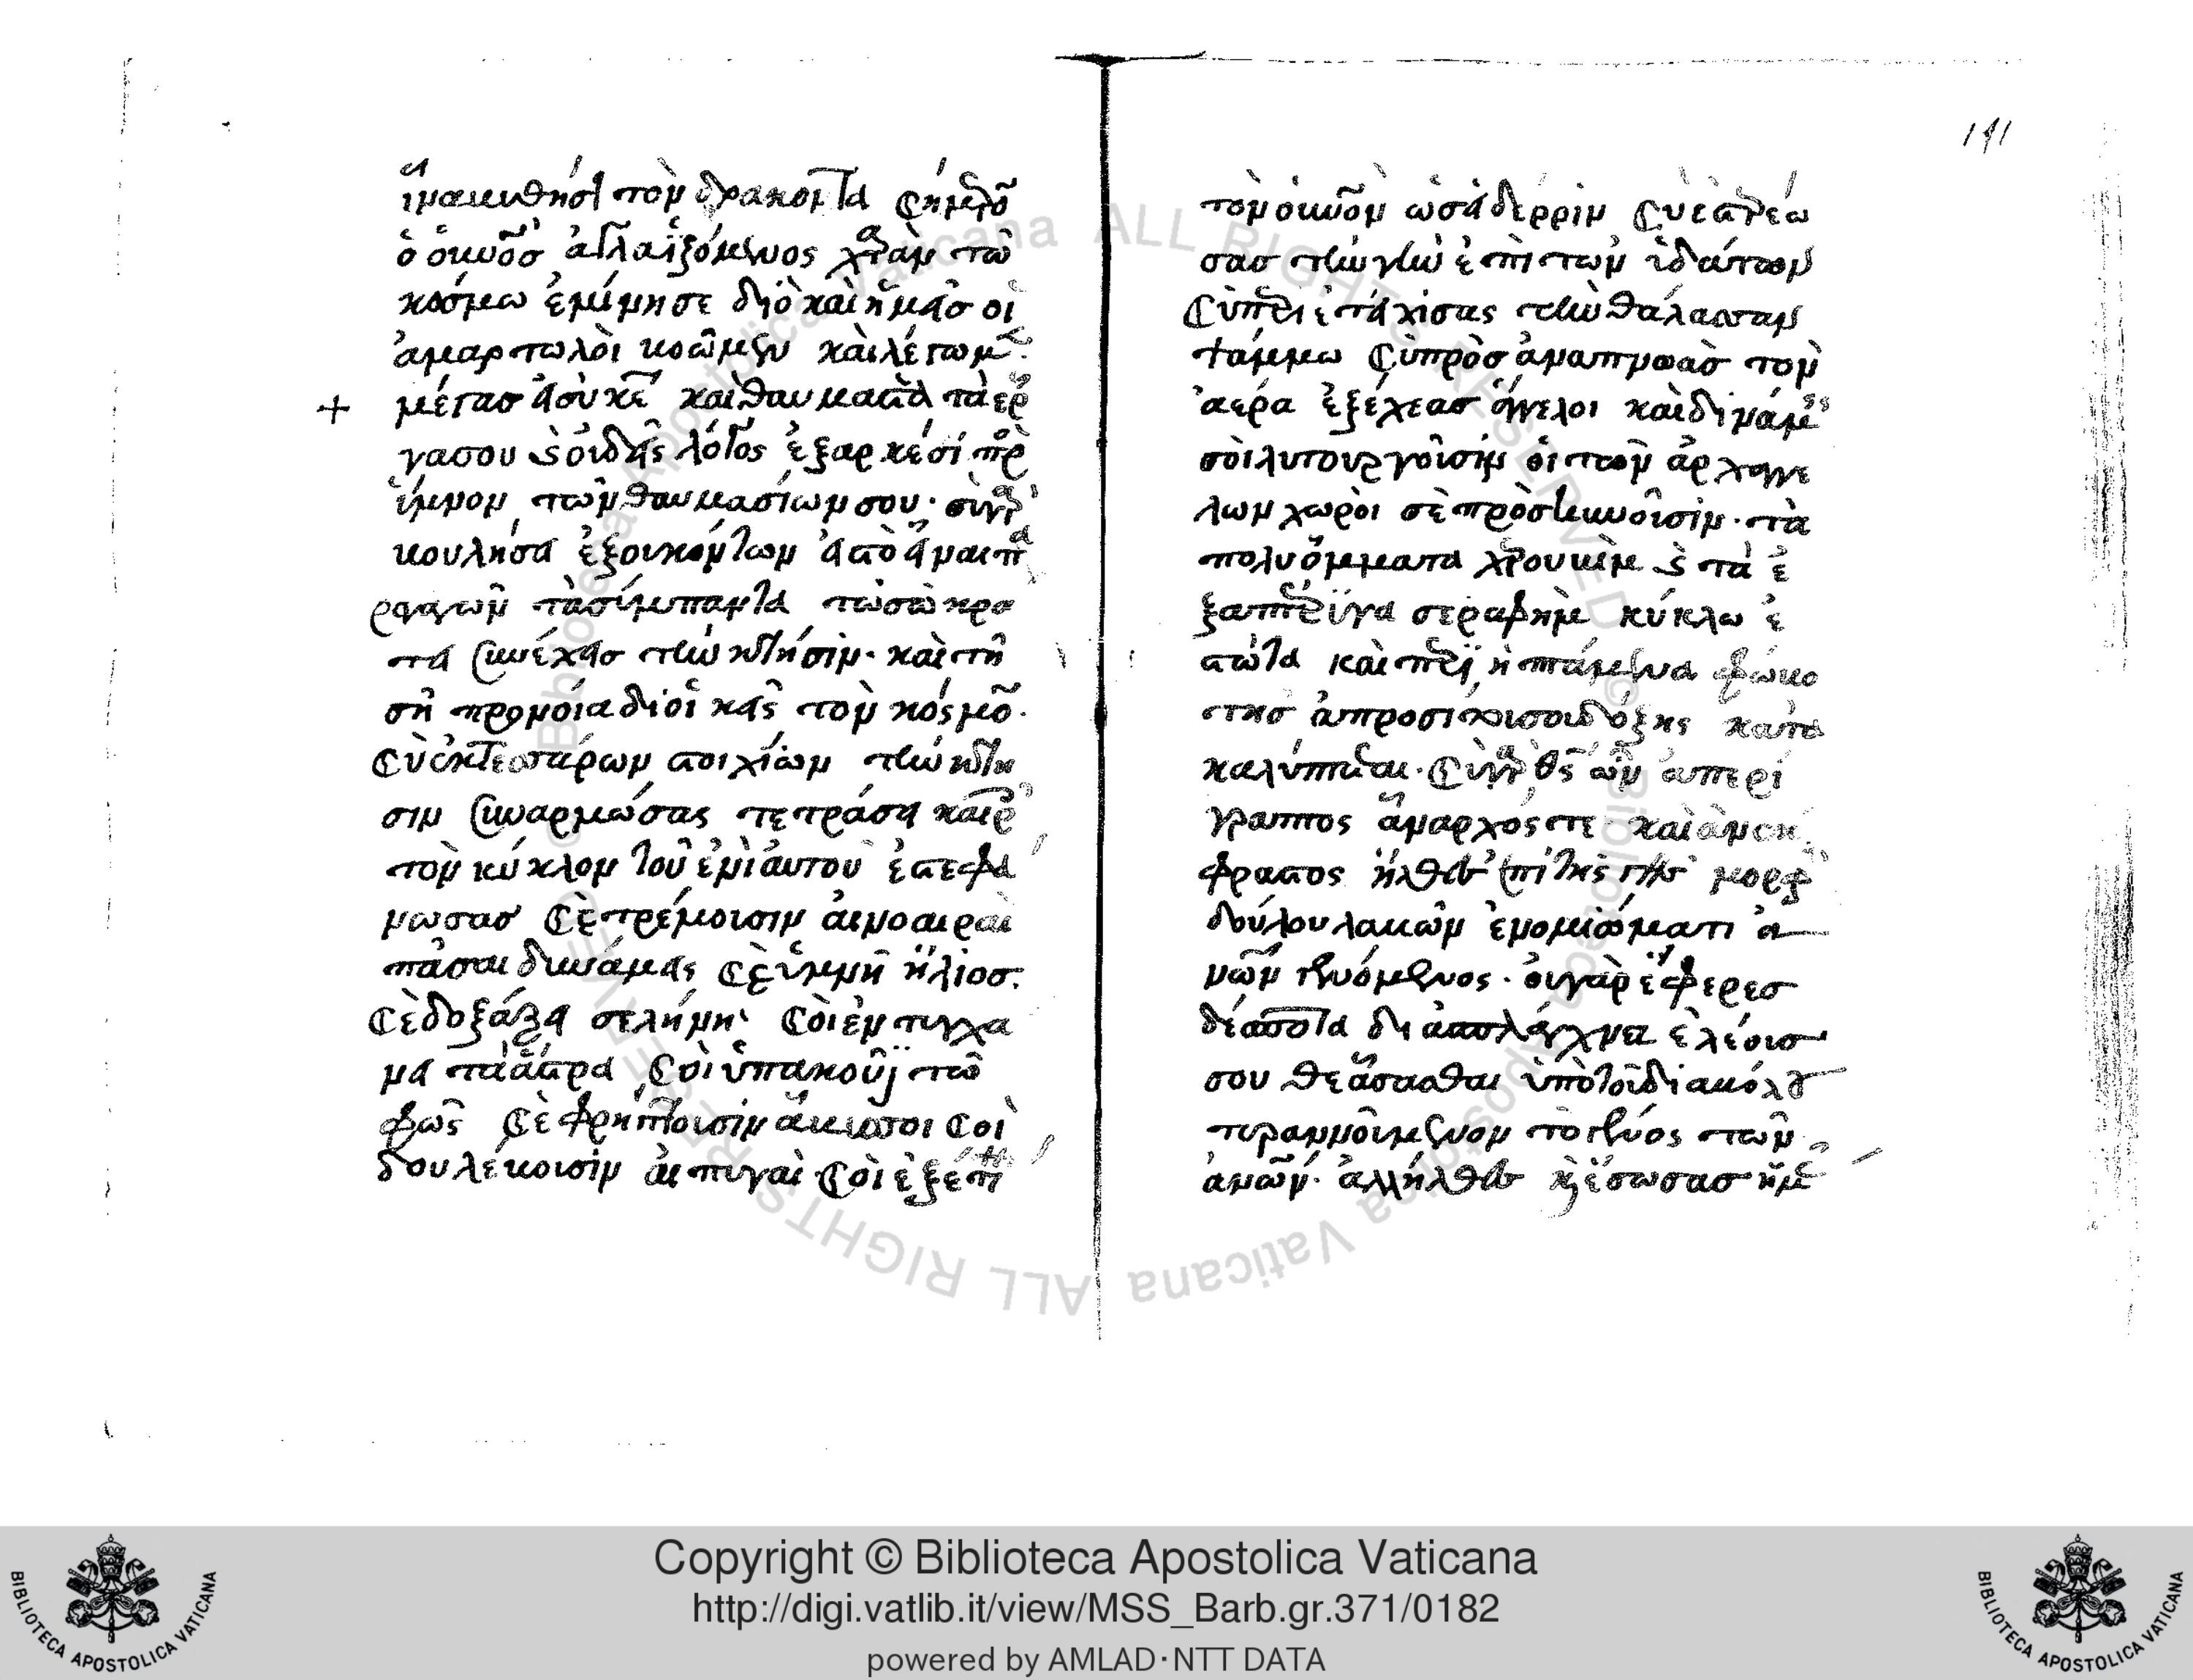 ἱμακυθήσι τὸν δράκοντα σήμερον
ὁ οὐνος ἀγλαϊζόμενος χαρὰν τῶ
κόσμω ἐμίμησε διὸ καὶ ἡμᾶσ οἱ
ἁμαρτωλὸι βοῶμεν καὶ λέγωμεν
+ μέγασ ἆσὺ κε καὶ θαυμαστὰ τὰ ἔρ
γασου κ οὐδεὶς λόγος ἐξαρκέσι πρ
ὕμνον τῶν θαυμασίων σου· σὺ γὰρ
βουλήσα ἐξουκόντων ἀπὸ
τὰ σύμπαντα τῶ σῶ κρα
τα συνέχασ τὴν κτήσιν· καὶ τῆ
σῆ προνοία διοικᾶς τὸν κόσμον·
σὺ ἐκ τεσσάρων στοιχίων τὴν κτη
σιν συναρμώσας τέτρασα καιρ
τὸν κύκλον τοῦ ἐνιαυτοῦ ἐστεφα
νωσασ σὲ τρέμουσιν αἱ νοαιραὶ
πᾶσαι δυνάμας σὲ ὑμνῆ ἥλιοσ·
σὲ δοξάζα σελήνη σοὶ ἐντυγχα
να τὰ ἄστρα σοὶ ὑπακοῦϊ τὸ
φῶς σὲ φρήττουσιν ἄβυσσοι σοὶ
δουλέβουσιν αἱ πυγαὶ σοὶ ἐξέτι
191
τὸν οὐνον ὡσὰ δέρριν σὺ ἐστερέω
σασ τὴν γὴν ἐπὶ τῶν ὑδάτων
σὺ περιετάχισας τὴν θάλασσαν
ψάμμω σὺ πρὸσ ἀναπνοὰσ τὸν
ἀέρα ἐξέχεασ ἄγγελοι καὶ δινάμις
σὸι λυτουργοῦσιν οἱ τῶν ἀρχαγγε
λων χωρὸι σὲ πρὸσκυνοῦσιν· τὰ
πολυόμματα χερουβὶμ κ τὰ ἑ
ξαπτέρϊγα σεραφὴμ κύκλω ἑ
στῶτα καὶ περιϊπτάμενα φώβο
τησ ἀπροσίτου σου δόξης κατα
καλύπτεται· σὺ γὰρ θς ὢν ἀπερί
γραπτος ἄναρχός τε καὶ ἀνεκ
φραστος ἦλθες ἐπὶ τῆς γῆς μορφ
δούλου λαβὼν ἐν ομοιώματι ἀ
νῶν γενόμενος· οὐ γὰρ ἔφερεσ
δέσποτα διὰ σπλάγχνα ἐλέουσ
σου θεάσασθαι ὑπὸ τοῦ διαβόλου
τυραννούμενον τὸ γένος τῶν
ἀνῶν· ἀλλ ἦλθες κ ἔσωσασ ἡμᾶς
Copyright © Biblioteca Apostolica Vaticana
http://digi.vatlib.it/view/MSS_Barb.gr.371/0182
powered by AMLAD·NTT DATA
BIBLIOTECA APOSTOLICA VATICANA
BIBLIOTECA APOSTOLICA VATICANA